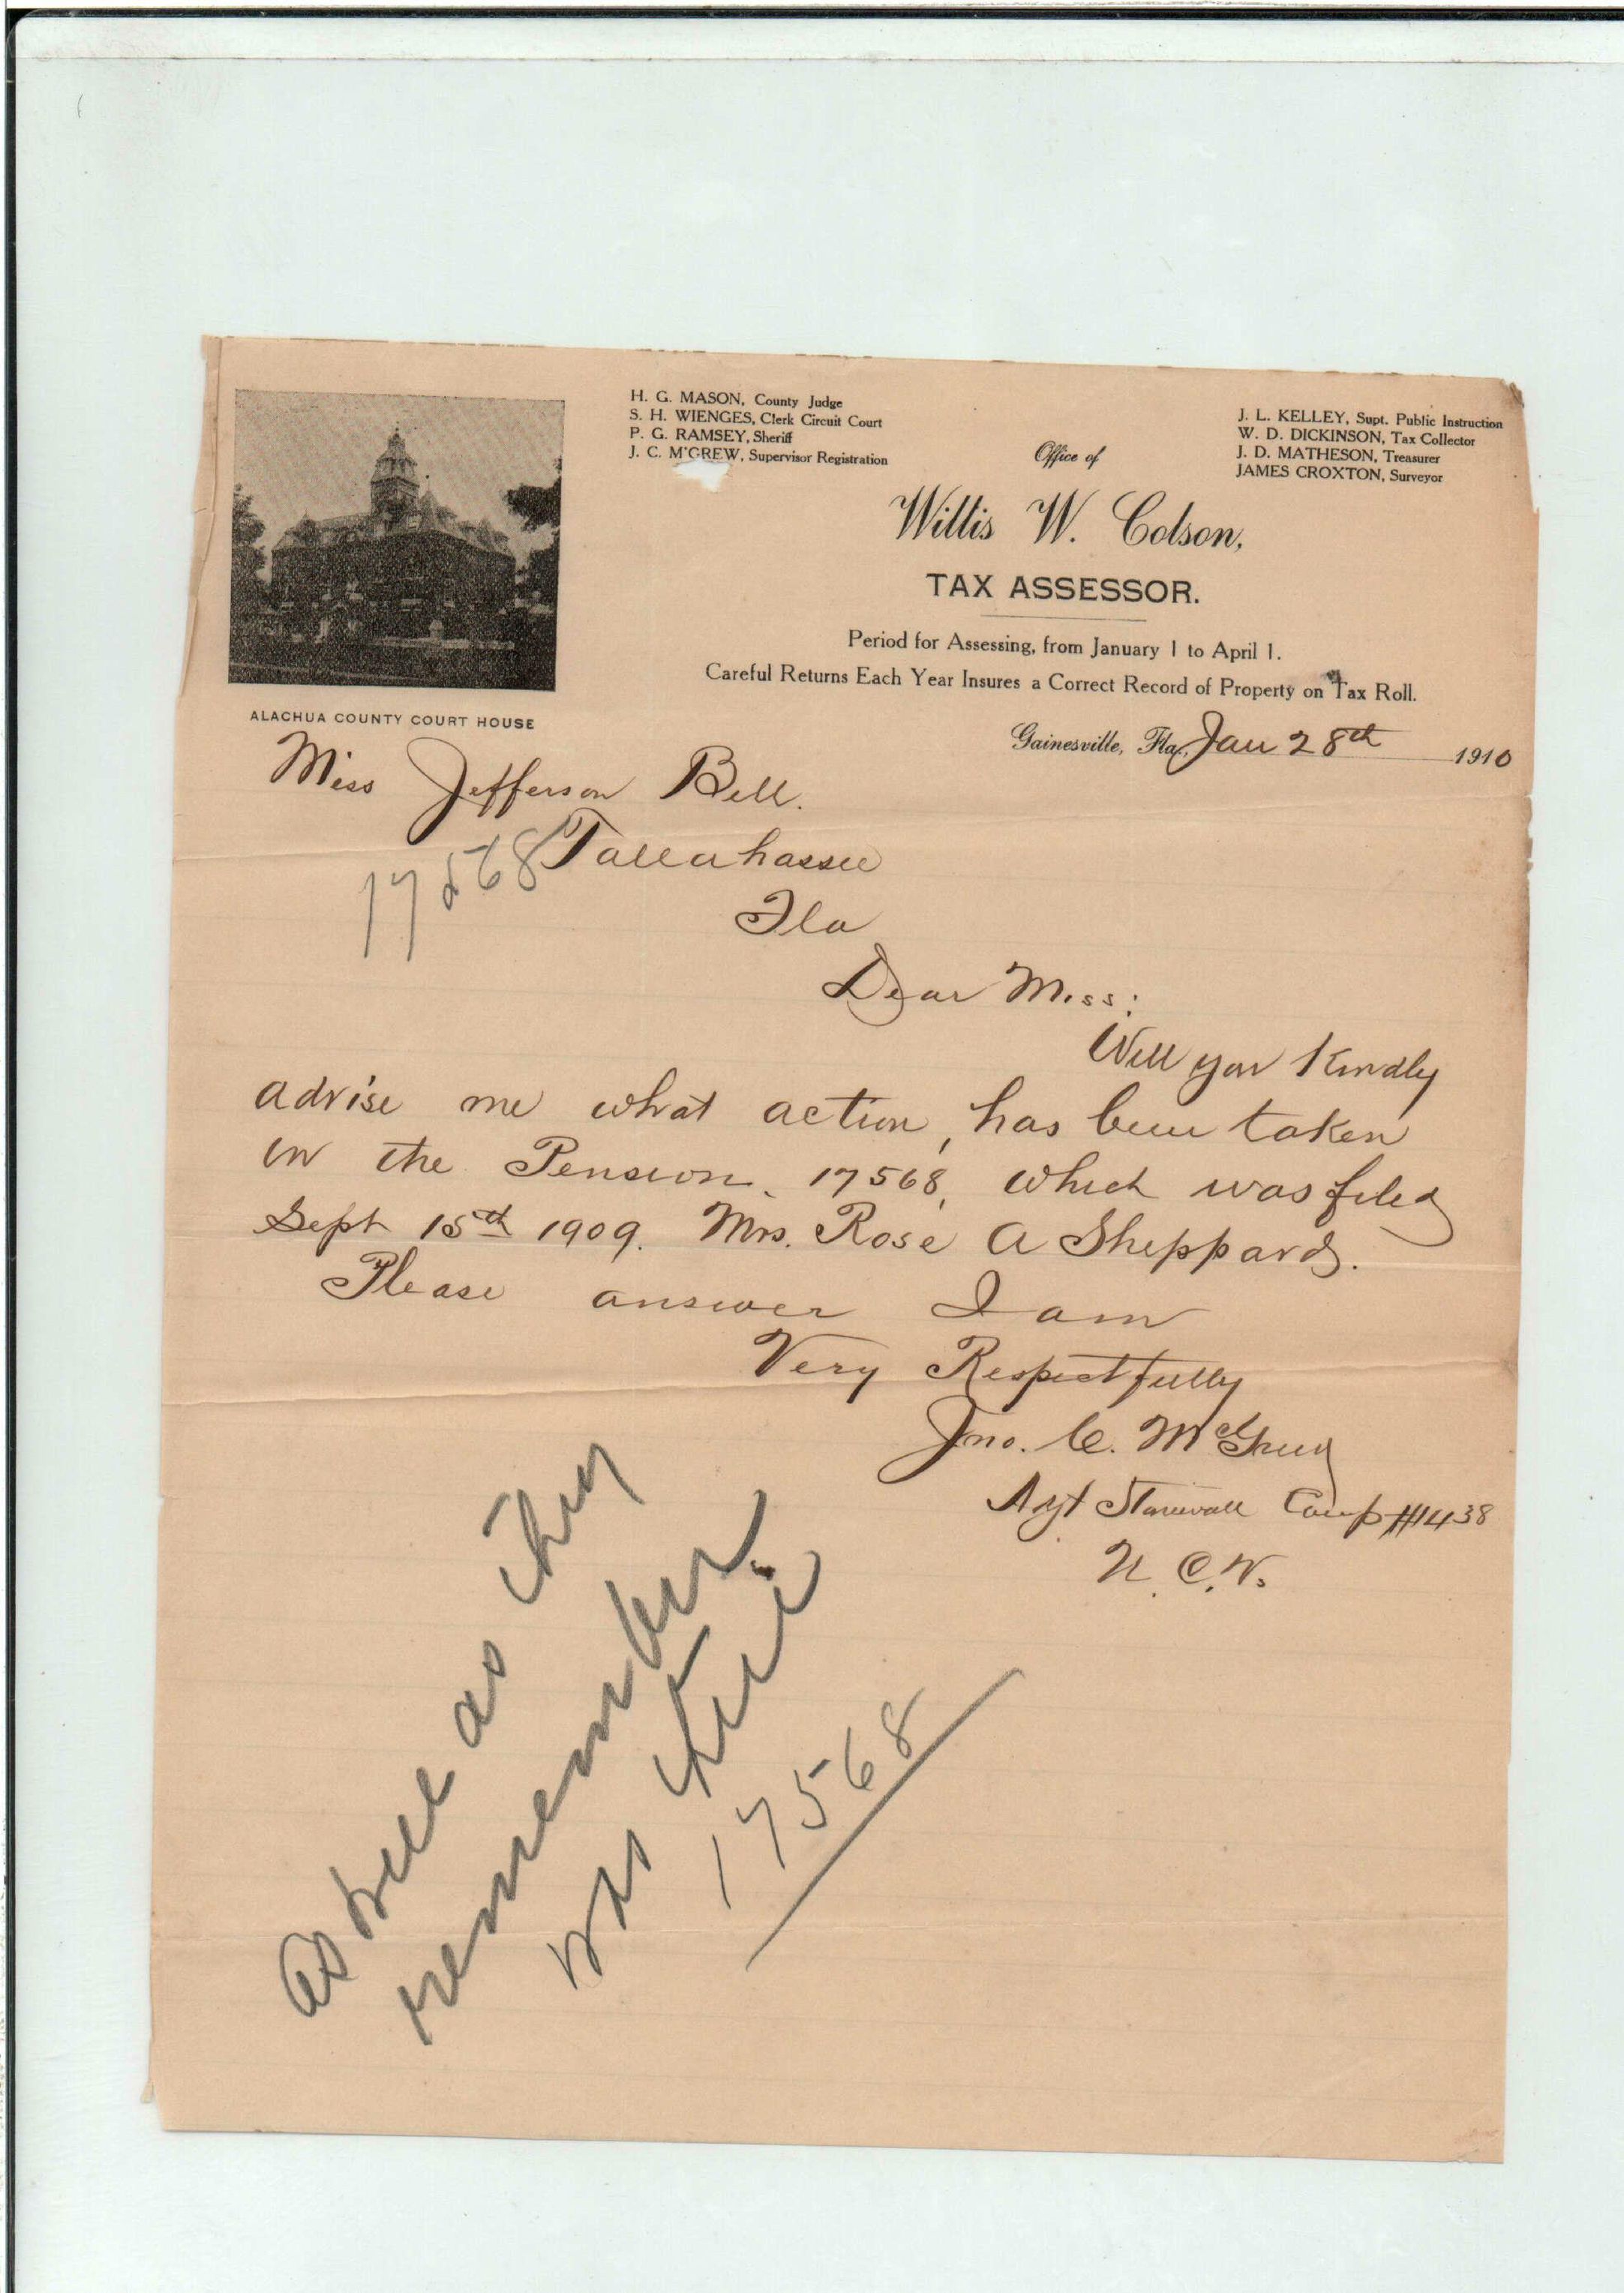 H. G. MASON, County Judge
S. H. WIENGES, Clerk Circuit Court
P. G. RAMSEY, Sheriff
J. C. M'GREW, Supervisor Registration
J. L. KELLEY, Supt. Public Instruction
W. D. DICKINSON, Tax Collector
J. D. MATHESON, Treasurer
JAMES CROXTON, Surveyor
Office of
Willis W. Colson,
TAX ASSESSOR.
Period for Assessing, from January 1 to April 1.
Careful Returns Each Year Insures a Correct Record of Property on Tax Roll.
ALACHUA COUNTY COURT HOUSE
Gainesville, Fla., Jan 28th 1910
Miss Jefferson Bell.
17568 Tallahassee
Fla
Dear Miss:
Will you Kindly
advise me what action, has been taken
in the Pension. 17568, which was filed
Sept 15th 1909. Mrs. Rose A Sheppard.
Please answer I am
Very Respectfully
Jno. C. McGrew
Adjt Stonewall Camp #1438
U. C. V.
as as they
remember
was
17568